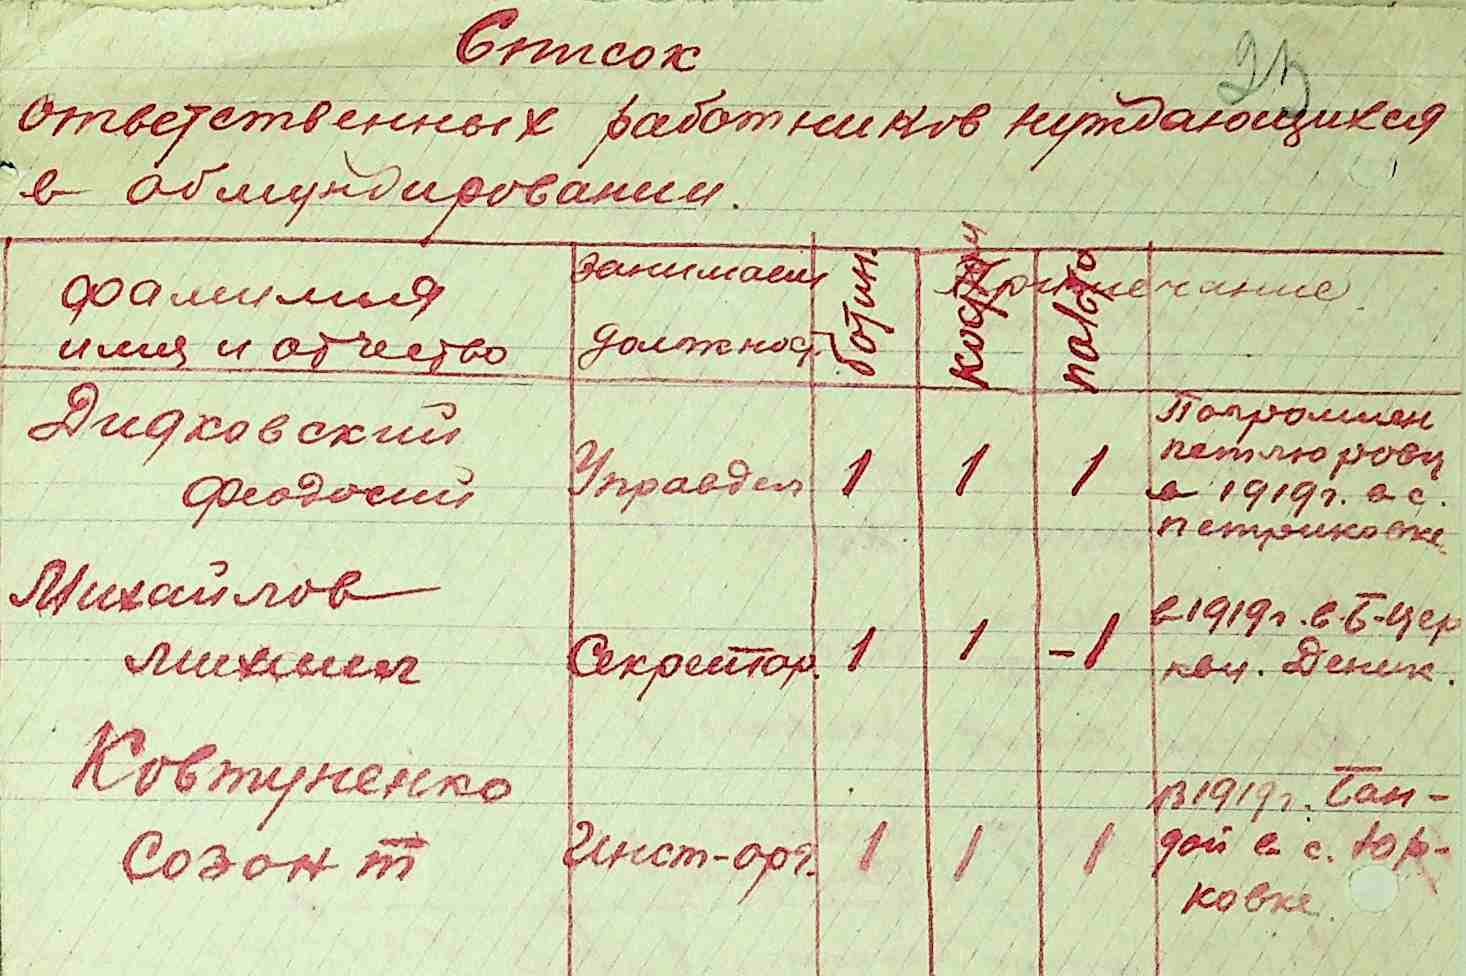 Список
25
ответственных работников нуждающихся
в обмундировании.
фамилия
имя и отчество
занимаем
должност.
ботин.
костюм
пальто
Примечание
Дидковский
Феодосий
Управдел
1
1
1
Погромлен
петлюровц
в 1919г. в с.
Петриковке
Михайлов
Михаил
Секретар.
1
1
-1
в 1919г. в Б-Цер
кви. Деник.
Ковтуненко
Созонт
Инст-орг.
1
1
1
в 1919г. Бан-
дой в с. Юр-
ковке.